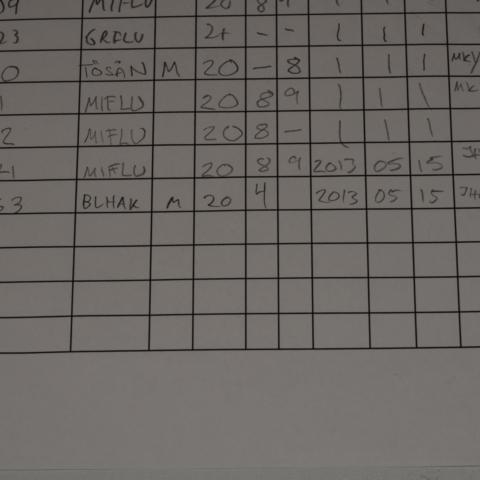 09 MIFLU 20 8 9 1 1 1
23 GRFLU 2+ - - 1 1 1
0 TÖSÅN M 20 - 8 1 1 1 MKY
1 MIFLU 20 8 9 1 1 1 MK
2 MIFLU 20 8 - 1 1 1
21 MIFLU 20 8 9 2013 05 15
53 BLHAK M 20 4 2013 05 15